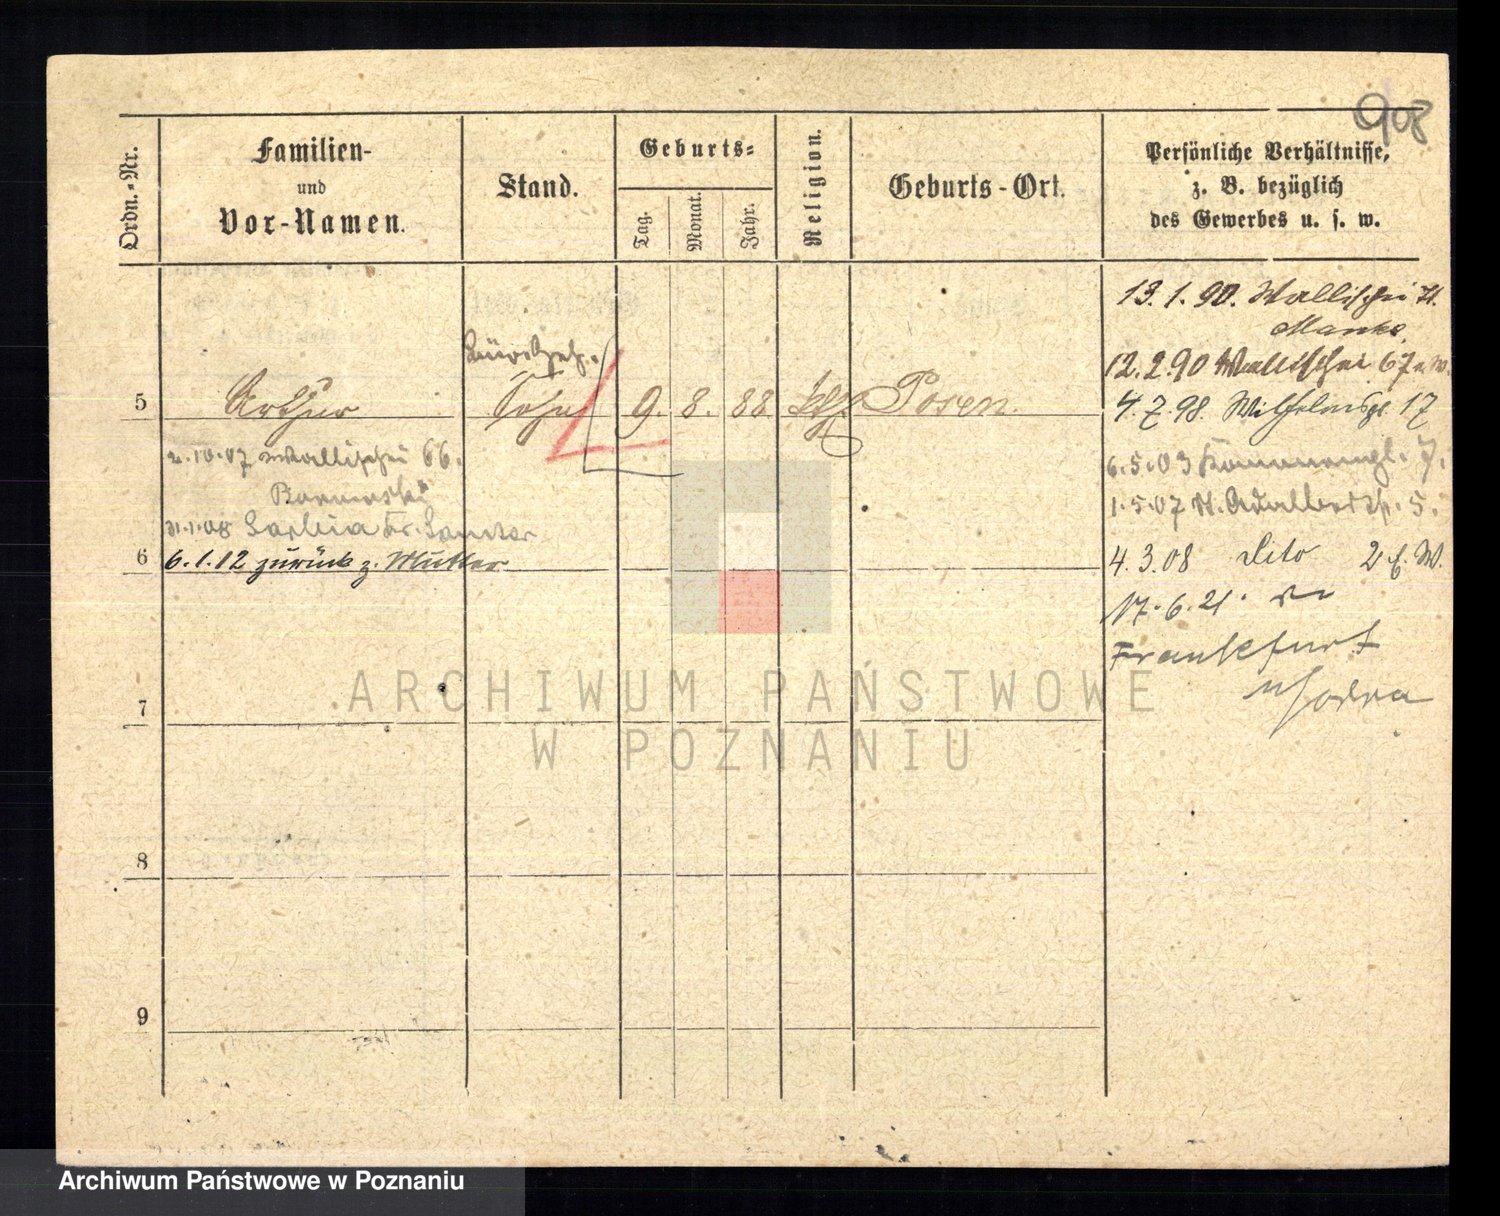 908
Ordn.-Nr.
Familien-
und
Vor-Namen.
Stand.
Geburts-
Tag.
Monat.
Jahr.
Religion.
Geburts-Ort.
Persönliche Verhältnisse,
z. B. bezüglich
des Gewerbes u. s. w.
13.1.90. Wallischei
12.2.90 Wallischei 67
5 Arthur Sohn 9. 8. 88 kth Posen. 4.7.98. Wilhelmspl. 17
2.10.07 Wallischei 66.
6.5.03
1.5.07 St. Adalbertstr. 5.
31.1.08
6
6.1.12 zurück z. Mutter
4.3.08 dito W.
17.6.21.
Frankfurt
7
8
9
ARCHIWUM PAŃSTWOWE
W POZNANIU
Archiwum Państwowe w Poznaniu